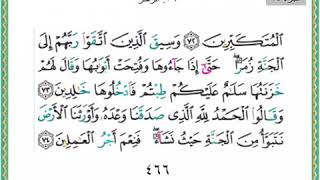 ٱلْمُتَكَبِّرِينَ ٧٢ وَسِيقَ ٱلَّذِينَ ٱتَّقَوْا۟ رَبَّهُمْ إِلَى
ٱلْجَنَّةِ زُمَرًا ۖ حَتَّىٰٓ إِذَا جَآءُوهَا وَفُتِحَتْ أَبْوَٰبُهَا وَقَالَ لَهُمْ
خَزَنَتُهَا سَلَـٰمٌ عَلَيْكُمْ طِبْتُمْ فَٱدْخُلُوهَا خَـٰلِدِينَ ٧٣
وَقَالُوا۟ ٱلْحَمْدُ لِلَّهِ ٱلَّذِى صَدَقَنَا وَعْدَهُۥ وَأَوْرَثَنَا ٱلْأَرْضَ
نَتَبَوَّأُ مِنَ ٱلْجَنَّةِ حَيْثُ نَشَآءُ ۖ فَنِعْمَ أَجْرُ ٱلْعَـٰمِلِينَ ٧٤
٤٦٦